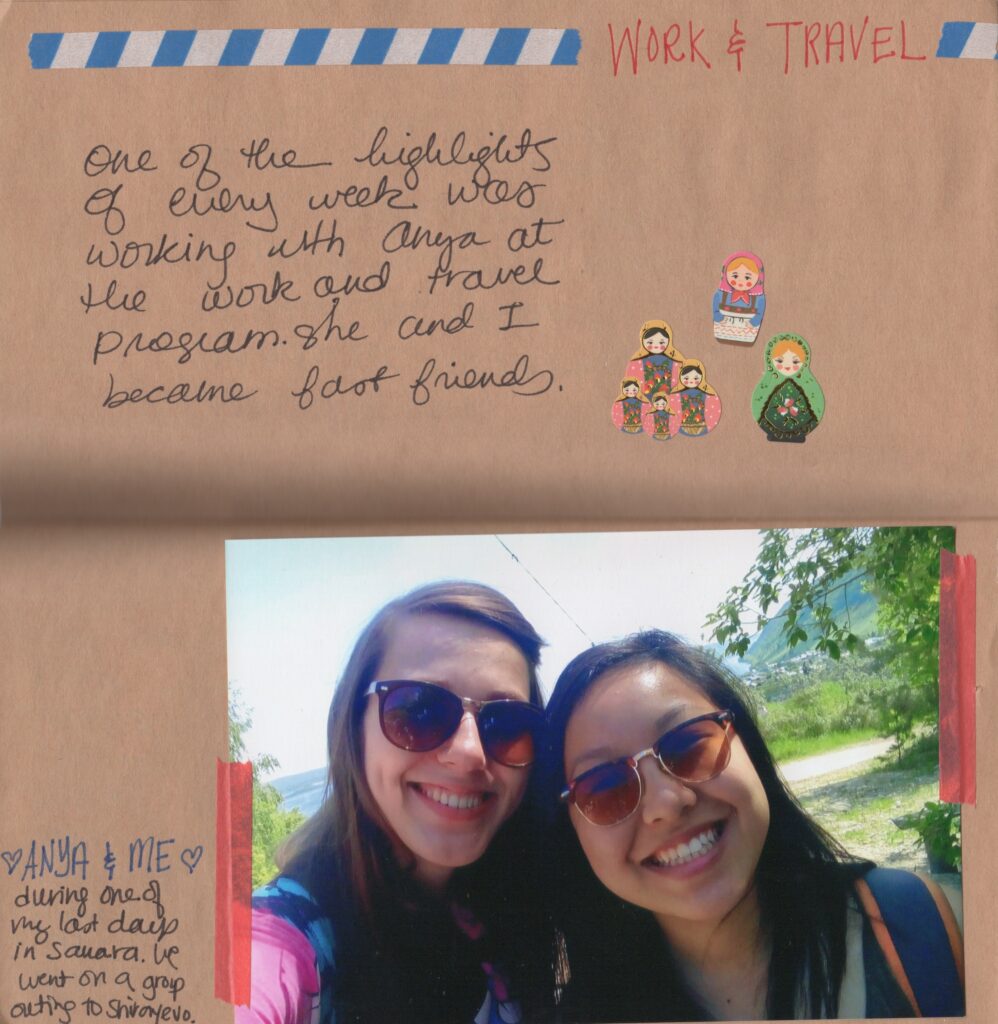 WORK & TRAVEL
One of the highlights
of every week was
working with Anya at
the work and travel
program. She and I
became fast friends.
♡ANYA & ME♡
during one of
my last days
in Samara. We
went on a group
outing to Shiryayevo.